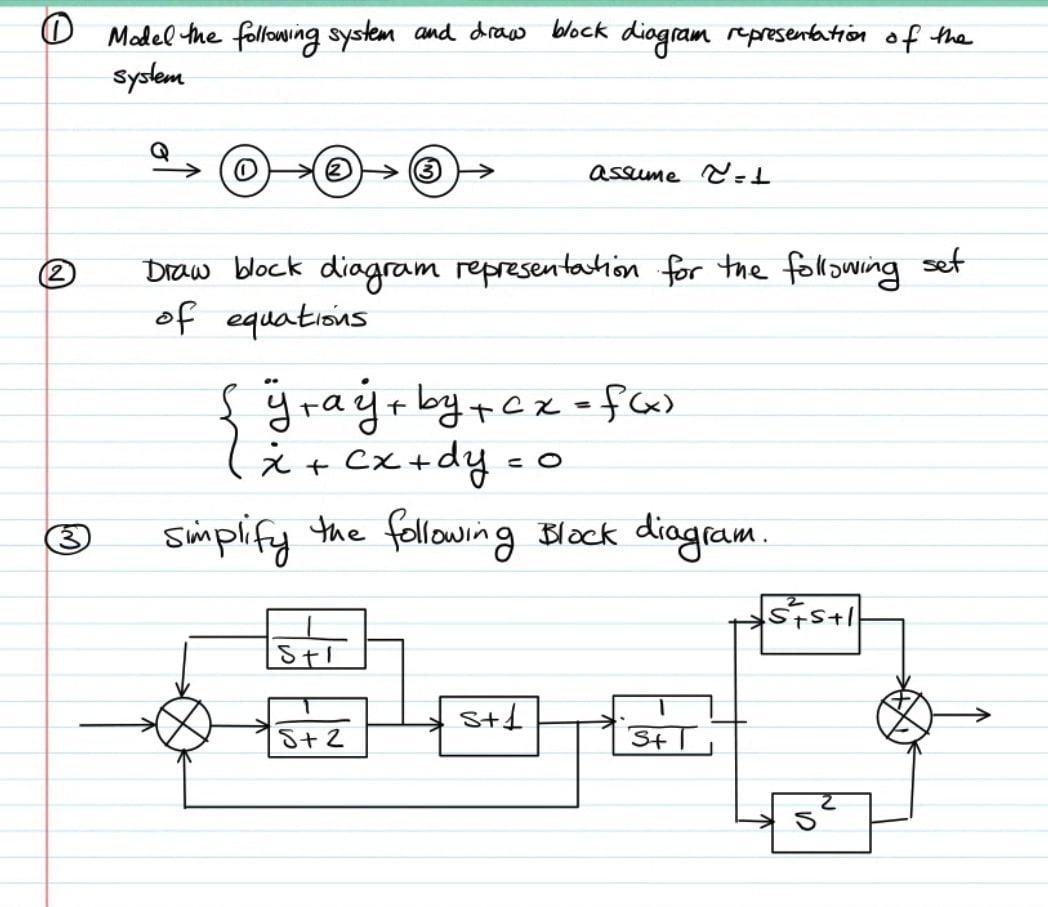 ① Model the following system and draw block diagram representation of the
system
Q
① ② ③ assume τ=1
② Draw block diagram representation for the following set
of equations
ÿ+aẏ+by+cx=f(x)
ẋ+cx+dy=0
③ simplify the following Block diagram.
s²+s+1
1/(s+1)
1/(s+2) s+1 1/(s+1) + -
s²